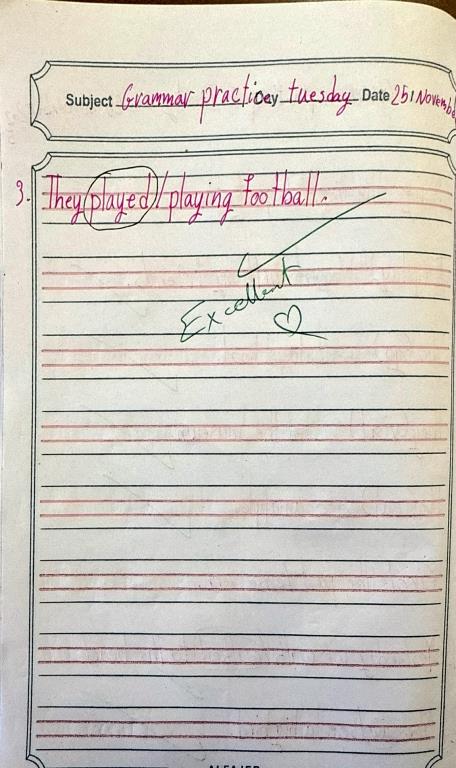 Subject Grammar practice Day tuesday Date 25 November
3. They played / playing football.
Excellent